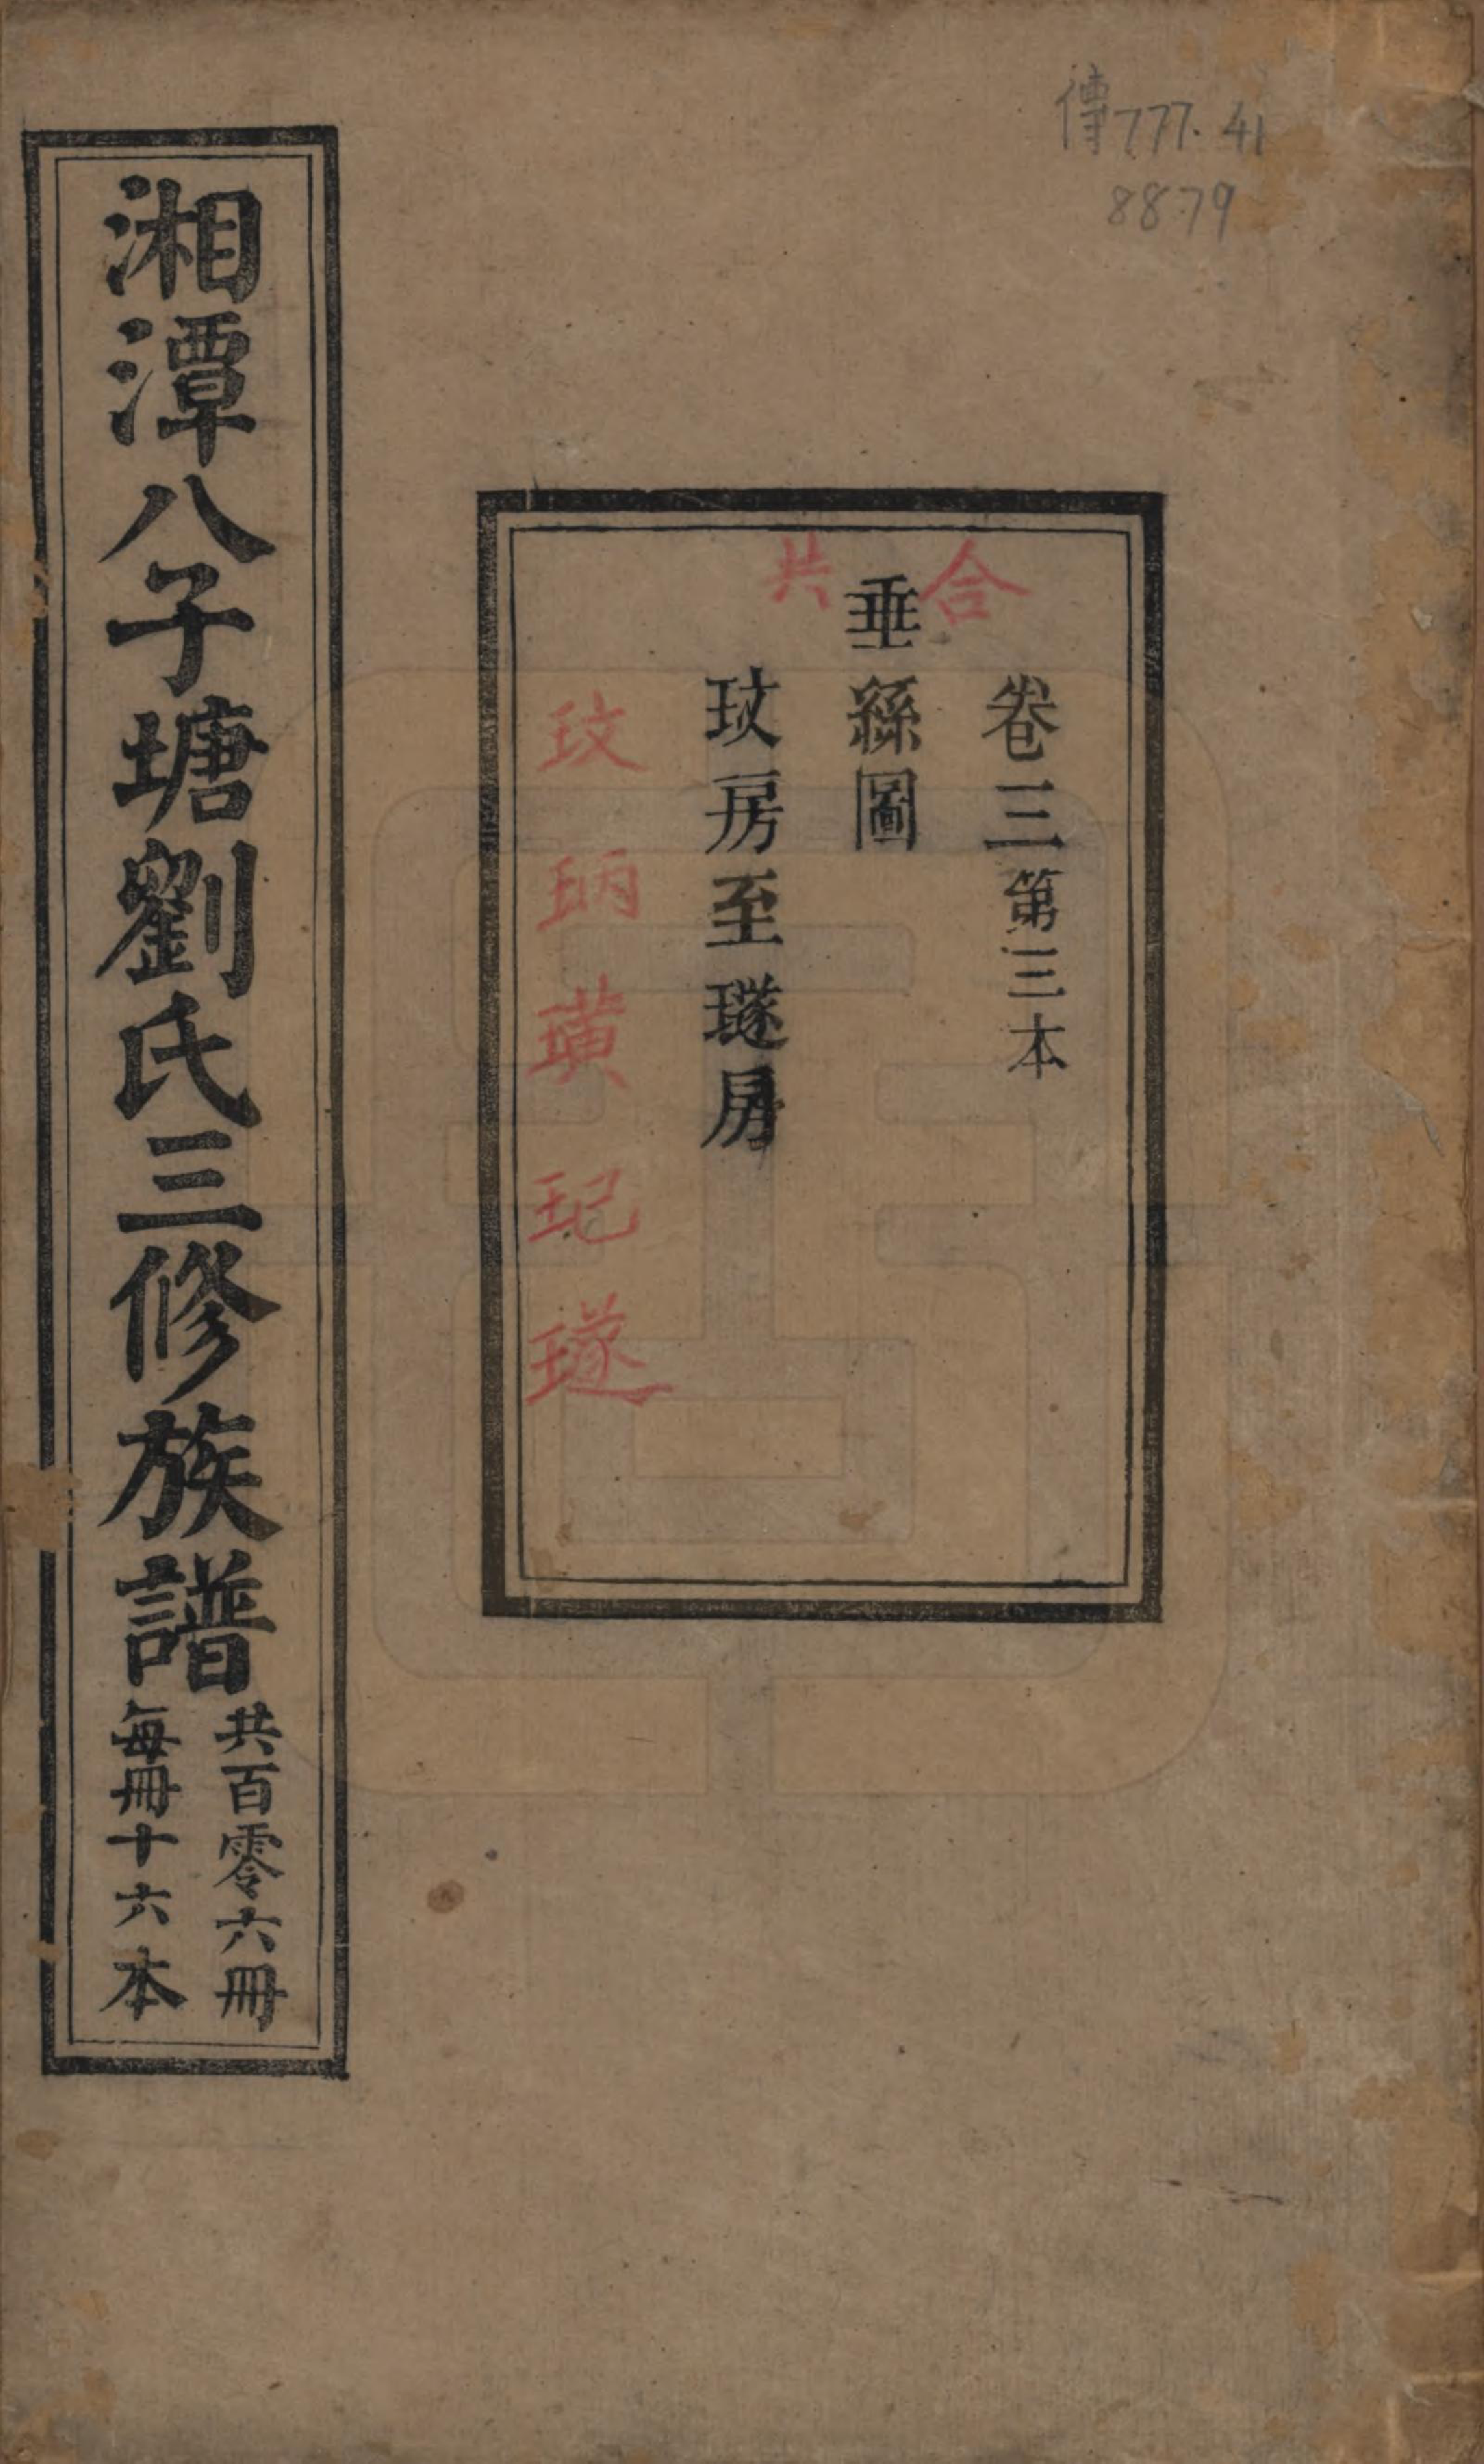 傳777.41
8879
合共
卷三第三本
垂絲圖
玟房至璲房
玟
昞
璜
玘
璲
湘潭八子塘劉氏三修族譜
共百零六冊
每冊十六本